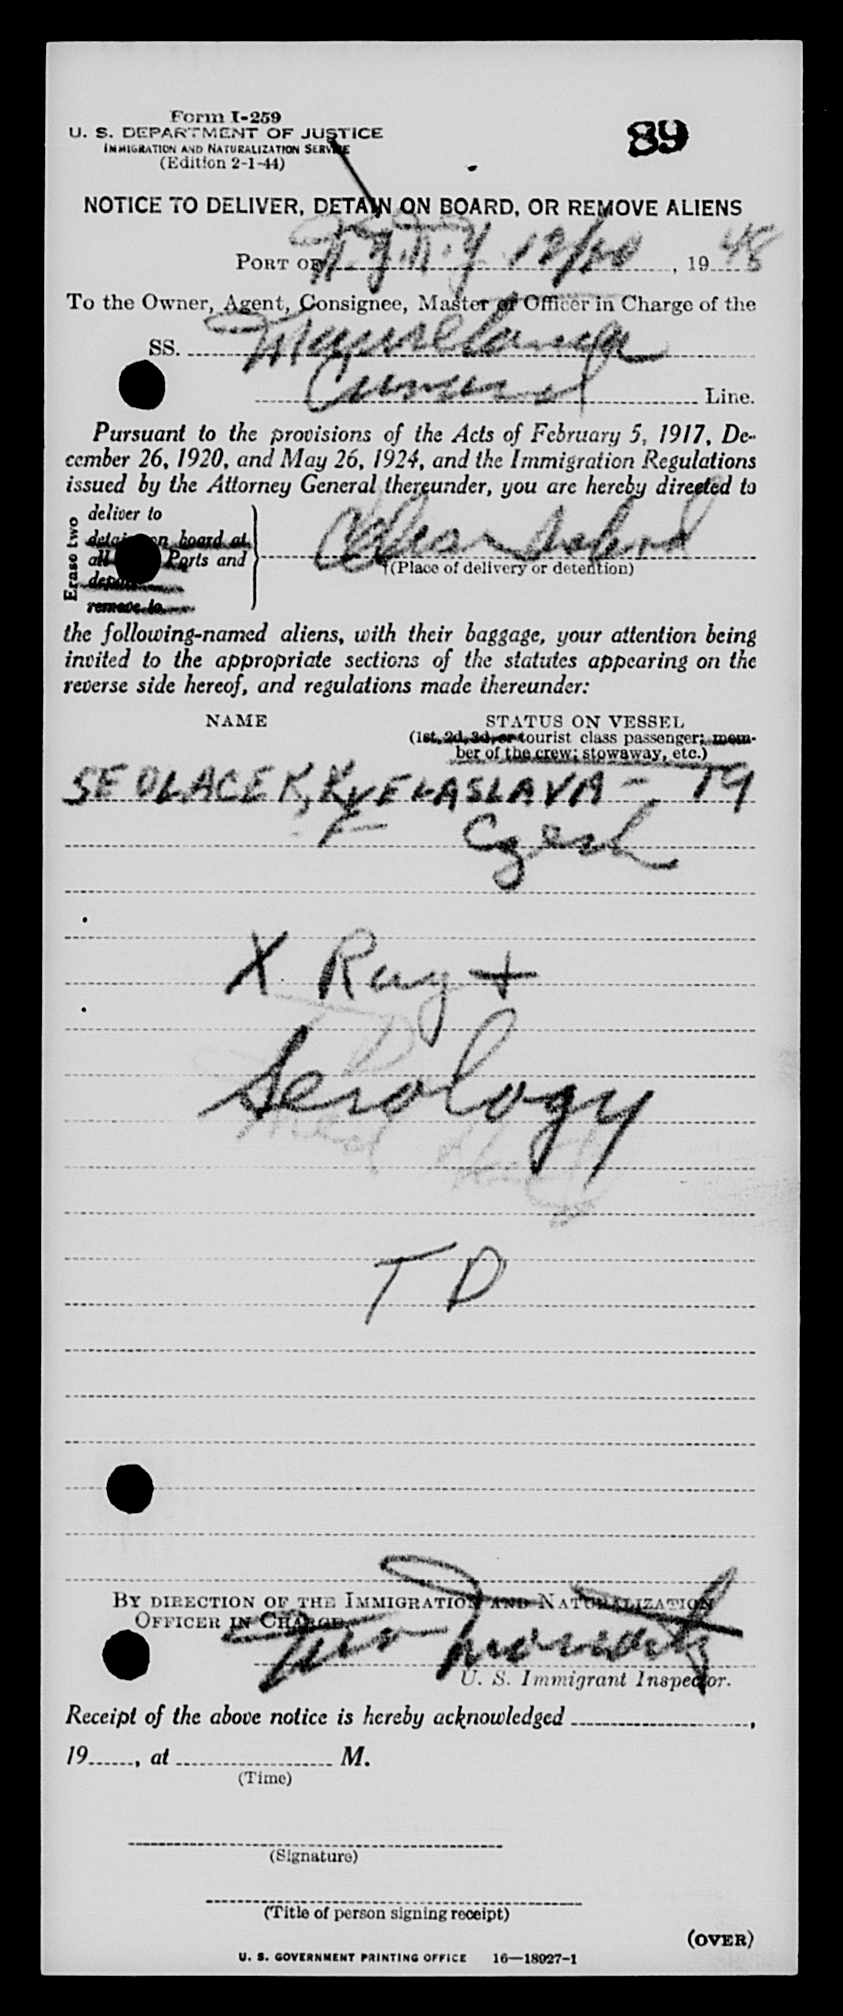 Form I-259
U. S. DEPARTMENT OF JUSTICE
IMMIGRATION AND NATURALIZATION SERVICE
(Edition 2-1-44)
89
NOTICE TO DELIVER, DETAIN ON BOARD, OR REMOVE ALIENS
PORT OF N.Y.N.Y. 12/20, 1948
To the Owner, Agent, Consignee, Master or Officer in Charge of the
SS.
Cunard Line.
Pursuant to the provisions of the Acts of February 5, 1917, De-
cember 26, 1920, and May 26, 1924, and the Immigration Regulations
issued by the Attorney General thereunder, you are hereby directed to
Erase two
deliver to
detain on board at
all Ports and
deport
remove to
Ellis Island
†(Place of delivery or detention)
the following-named aliens, with their baggage, your attention being
invited to the appropriate sections of the statutes appearing on the
reverse side hereof, and regulations made thereunder:
NAME STATUS ON VESSEL
(1st, 2d, 3d, or tourist class passenger; mem-
ber of the crew; stowaway, etc.)
SEDLACEK, KVELASLAVA - T9
F Czech
X Ray +
Serology
TD
BY DIRECTION OF THE IMMIGRATION AND NATURALIZATION
OFFICER IN CHARGE.
U. S. Immigrant Inspector.
Receipt of the above notice is hereby acknowledged ,
19 , at M.
(Time)
(Signature)
(Title of person signing receipt)
(OVER)
U. S. GOVERNMENT PRINTING OFFICE 16—18927-1